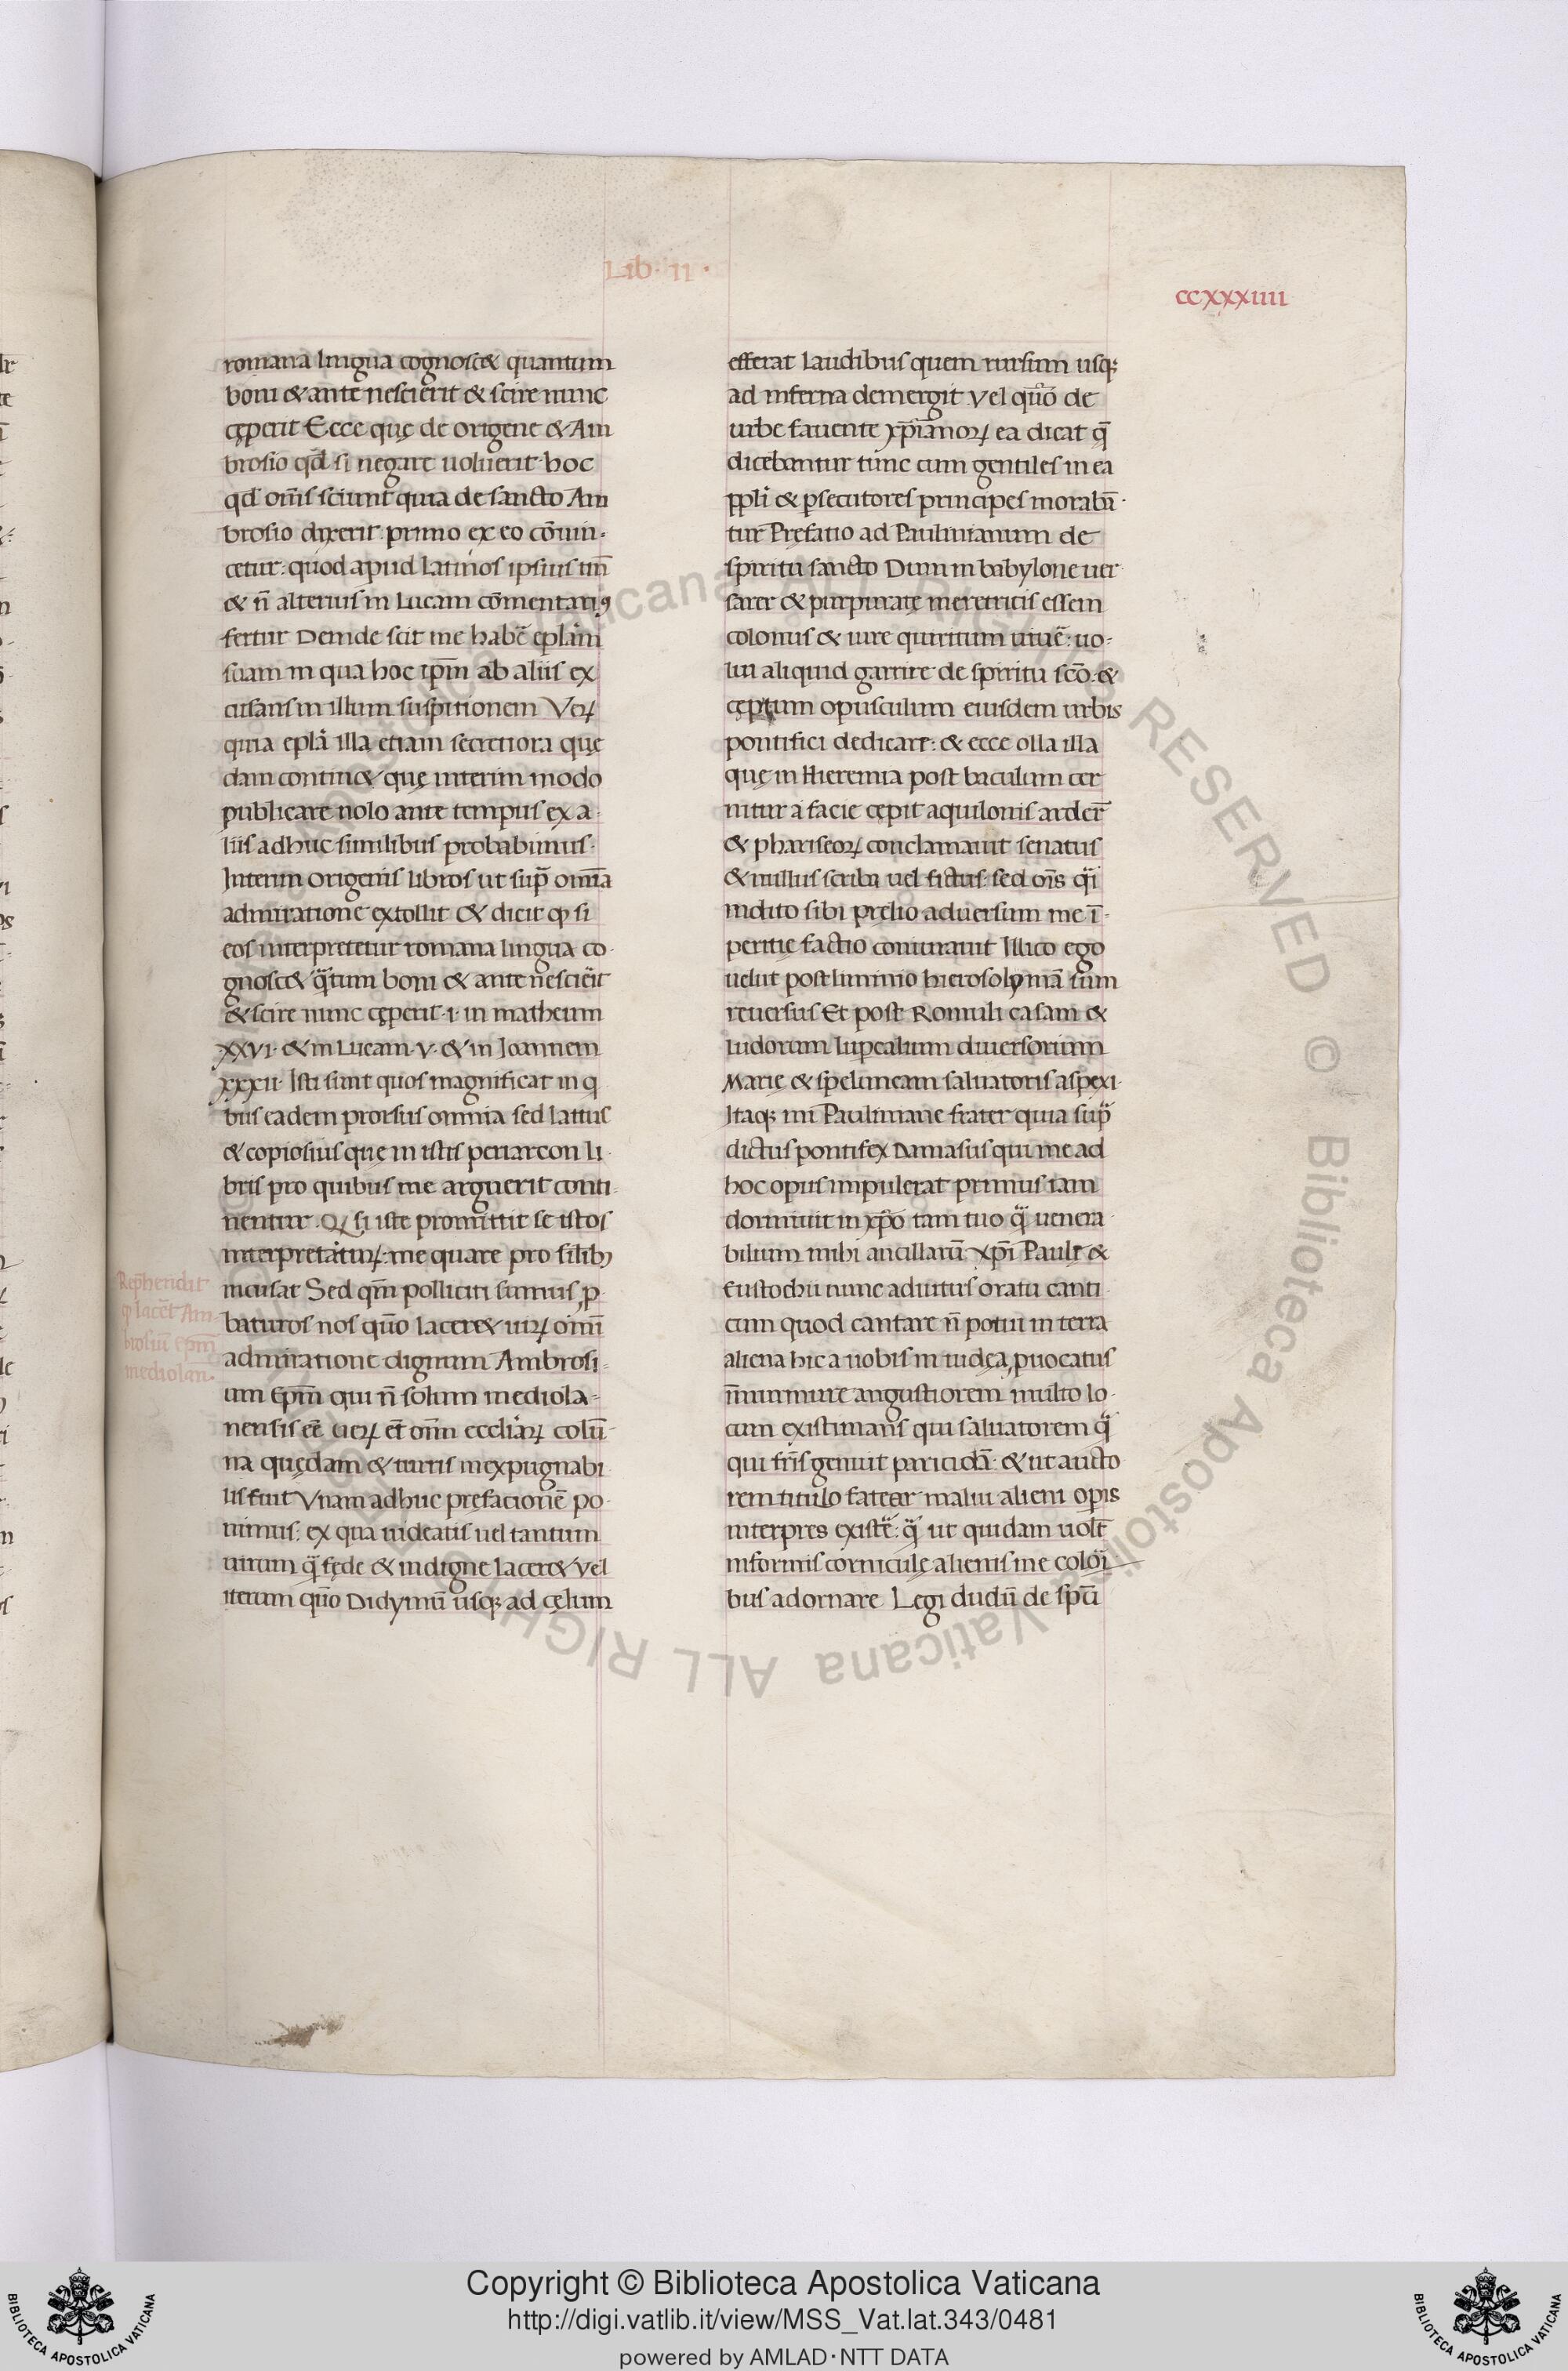 Lib· II·
ccxxxiiii
romana lingua cognosc& quantum
boni & ante nescierit & scire nunc
cęperit Ecce quę de origene & Am
brosio qđ si negare uoluerit hoc
qđ om̄s sciunt quia de sancto Am
brosio dixerit. primo ex eo cōuin-
cetur: quod apud latinos ipsius tm̄
& n̄ alterius in Lucam cōmentariꝰ
fertur Deinde scit me habē ep̄lam
suam in qua hoc ip̄m ab aliis ex
cusans in illum suspitionem Veꝝ
quia ep̄la illa etiam secretiora quę
dam contin& quę interim modo
publicare nolo ante tempus ex a-
liis adhuc similibus probabimus·
Interim origenis libros ut sup̄ om̄ia
admiratione extollit & dicit ꝙ si
eos interpretetur romana lingua co-
gnosc& q̄tum boni & ante nescierit
& scire nunc cęperit·i· in matheum
xxvi· & in Lucam·v· & in Ioannem
xxxii· Isti sunt quos magnificat in q
bus eadem prorsus omnia sed latius
& copiosius quę in istis periarcon li-
bris pro quibus me arguerit conti-
nentur. Qꝫ si iste promittit se istos
interpretatuꝝ: me quare pro silibꝫ
incusat Sed qm̄ polliciti sumus ꝓ-
baturos nos quō lacer& uiꝝ omī
admiratione dignum Ambrosi-
um Ep̄m qui n̄ solum mediola-
nensis eē ueꝝ et om̄ ecclīaꝝ colū-
na quędam & turris inexpugnabi
lis fuit Vnam adhuc prefacionē po-
nimus: ex qua uideatis uel tantum
uirum q̄ fęde & indigne lacer& vel
iterum quō Didymū usqꝫ ad cęlum
Rep̄hendit
ꝙ lacēt Am-
brosiū ep̄m
mediolan·
efferat laudibus quem rursum usqꝫ
ad inferna demergit vel quō de
urbe fauente xp̄ianoꝝ ea dicat q̄
dicebantur tunc cum gentiles in ea
pp̄li & ꝑsecutores principes morabā-
tur Pręfatio ad Paulinianum de
spiritu sancto Dum in babylone uer-
sarer & purpuratę meretricis essem
colonus & iure quiritum uiuē: uo-
lui aliquid garrire de spiritu scō: &
cęptum opusculum eiusdem urbis
pontifici dedicare: & ecce olla illa
quę in Hieremia post baculum cer
nitur a facie cępit aquilonis ardeř
& phariseoꝝ conclamauit senatus
& nullus scriba uel fictus sed oīs q̄i
indito sibi prelio aduersum me ī-
peritię factio coniurauit Illico ego
uelut postliminio hierosolymā sum
reuersus Et post Romuli casam &
ludorum lupercalium diuersorium
Marię & speluncam saluatoris aspexi·
Itaqꝫ mi Pauliniane frater quia sup̄
dictus pontifex Damasus qui me ad
hoc opus impulerat primus iam
dormiuit in xp̄o tam tuo q̄ venera-
bilium mihi ancillarū xp̄i Paulę &
Eustochii nunc adiutus oratu canti-
cum quod cantare n̄ potui in terra
aliena hic a uobis in iudęa ꝓuocatus
īmurmure angustiorem multo lo-
cum existimans qui saluatorem q̄
qui fr̄is genuit paricidā: & ut aucto
rem titulo fatear malui alieni opis
interpres existē: q̄ ut quidam uolt̄
informis corniculę alienis me colori
bus adornare Legi dudū de spū
Copyright © Biblioteca Apostolica Vaticana
http://digi.vatlib.it/view/MSS_Vat.lat.343/0481
powered by AMLAD·NTT DATA